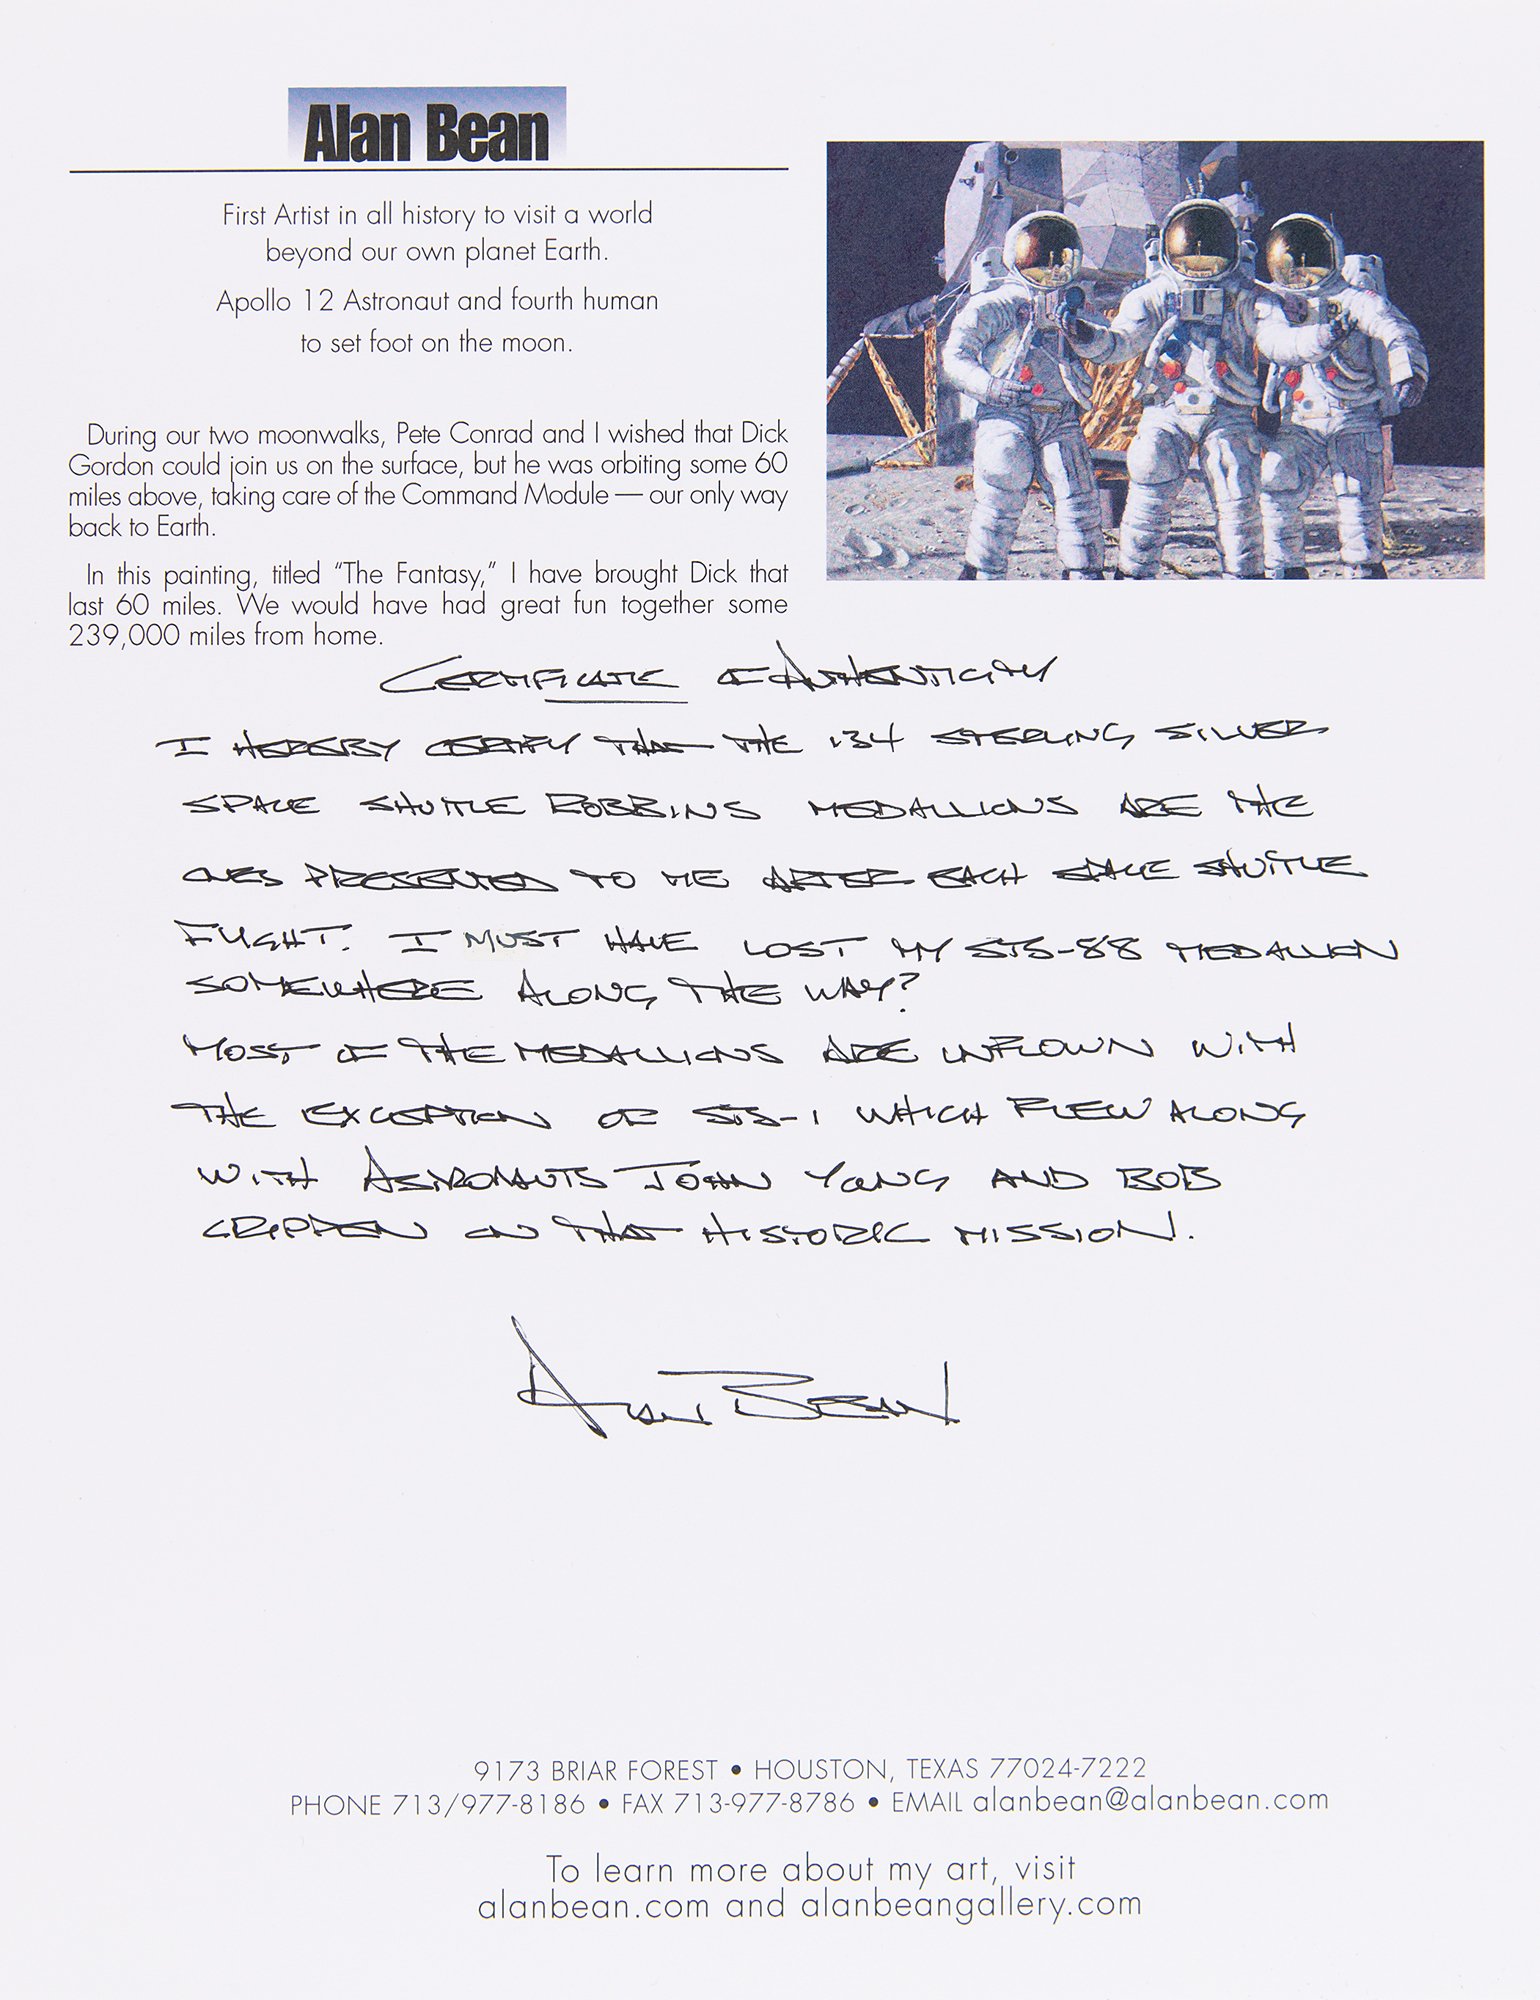 Alan Bean
First Artist in all history to visit a world
beyond our own planet Earth.
Apollo 12 Astronaut and fourth human
to set foot on the moon.
During our two moonwalks, Pete Conrad and I wished that Dick
Gordon could join us on the surface, but he was orbiting some 60
miles above, taking care of the Command Module — our only way
back to Earth.
In this painting, titled “The Fantasy,” I have brought Dick that
last 60 miles. We would have had great fun together some
239,000 miles from home.
CERTIFICATE OF AUTHENTICITY
I HEREBY CERTIFY THAT THE 134 STERLING SILVER
SPACE SHUTTLE ROBBINS MEDALLIONS ARE THE
ONES PRESENTED TO ME AFTER EACH SPACE SHUTTLE
FLIGHT. I MUST HAVE LOST MY STS-88 MEDALLION
SOMEWHERE ALONG THE WAY?
MOST OF THE MEDALLIONS ARE UNFLOWN WITH
THE EXCEPTION OF STS-1 WHICH FLEW ALONG
WITH ASTRONAUTS JOHN YOUNG AND BOB
CRIPPEN ON THAT HISTORIC MISSION.
ALAN BEAN
9173 BRIAR FOREST • HOUSTON, TEXAS 77024-7222
PHONE 713/977-8186 • FAX 713-977-8786 • EMAIL alanbean@alanbean.com
To learn more about my art, visit
alanbean.com and alanbeangallery.com